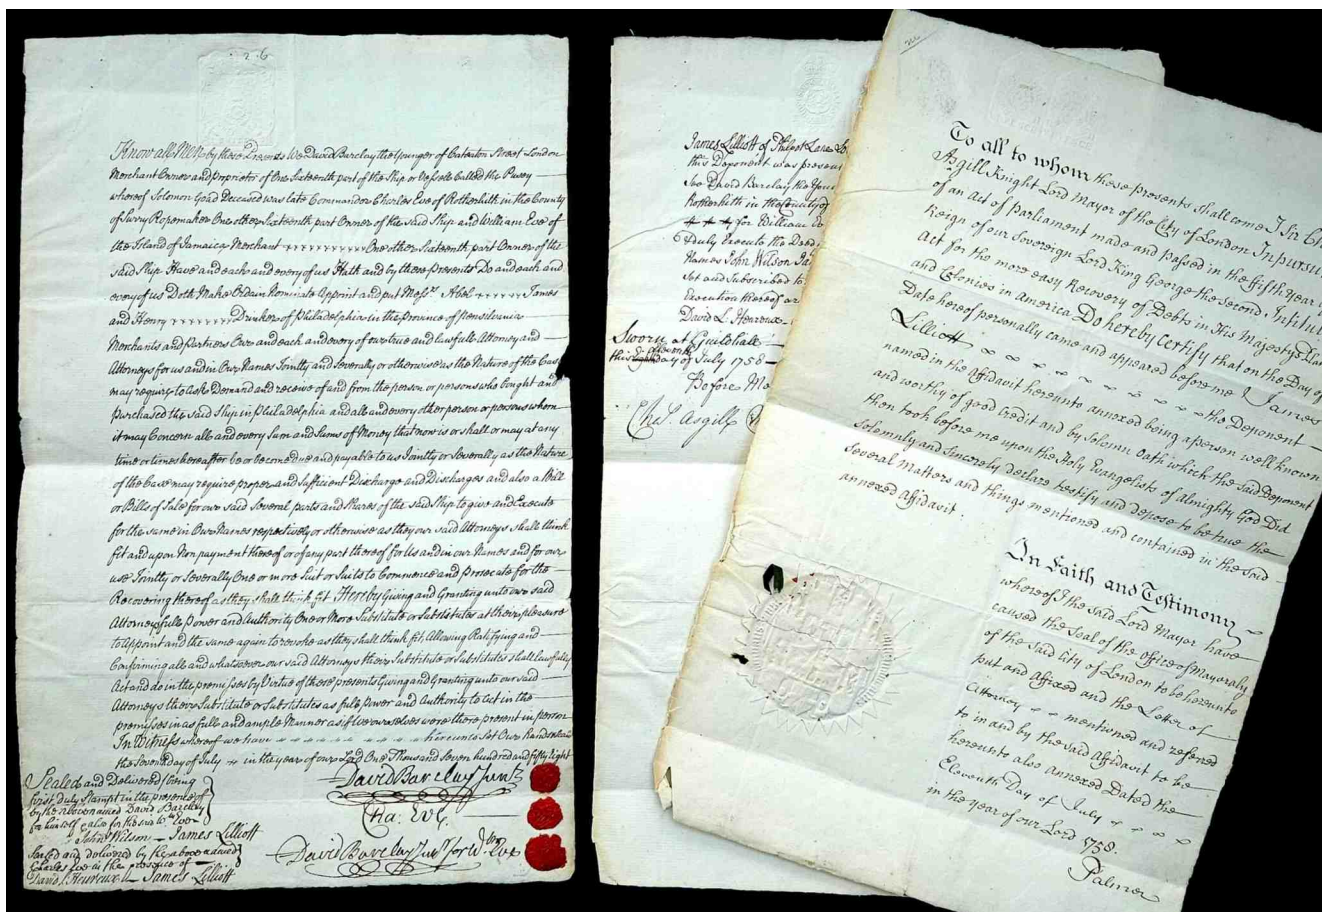 26
Know all Men by these Presents We David Barclay the Younger of Cateaton Street London
Merchant Owner and Proprietor of One Sixteenth part of the Ship or Vessell Called the Pusey
whereof Solomon Goad Deceased was late Commander Charles Eve of Rotherhith in the County
of Surry Ropemaker One other Sixteenth part Owner of the said Ship and William Eve of
the Island of Jamaica Merchant One other Sixteenth part Owner of the
said Ship Have and each and every of us Hath and by these Presents Do and each and
every of us Doth Make Ordain Nominate Appoint and put Messrs. Abel James
and Henry Drinker of Philadelphia in the Province of Pensilvania
Merchants and Partners Our and each and every of our true and lawfull Attorney and
Attorneys for us and in Our Names Jointly and Severally or otherwise as the Nature of the Case
may require to Ask Demand and receive of and from the person or persons who bought and
Purchased the said Ship in Philadelphia and all and every other person or persons whom
it may Concern all and every Sum and Sums of Money that now is or shall or may at any
time or times hereafter be or become due and payable to us Jointly or Severally as the Nature
of the Case may require proper and Sufficient Discharge and Discharges and also a Bill
or Bills of Sale for our said Several parts and Shares of the said Ship to give and Execute
for the same in Our Names respectively or otherwise as they our said Attorneys shall think
fit and upon Non payment thereof or of any part thereof for Us and in our Names and for our
use Jointly or Severally One or more Suit or Suits to Commence and Prosecute for the
Recovering thereof as they shall think fit Hereby Giving and Granting unto our said
Attorneys full Power and Authority One or More Substitute or Substitutes at their pleasure
to Appoint and the same again to revoke as they shall think fit, Allowing Ratifying and
Confirming all and whatsoever our said Attorneys their Substitute or Substitutes shall lawfully
Act and do in the premises by Virtue of these presents Giving and Granting unto our said
Attorneys their Substitute or Substitutes as full Power and Authority to Act in the
premises in as full and ample Manner as if we ourselves were there present in person
In Witness whereof we have hereunto Set Our Hands and
the Seventh day of July in the year of our Lord One Thousand Seven hundred and fifty Eight
Sealed and Delivered (being
first duly Stampt in the presence of
by the abovenamed David Barclay
for himself & also for the said Wm Eve
John Wilson James Lilliott
Sealed and delivered by the abovenamed
Charles Eve in the presence of
David L'Heureux James Lilliott
David Barclay Junr
Cha: Eve
David Barclay Junr for Wm Eve
James Lilliott of Philpot Lane Lo
this Deponent was present
see David Barclay the Youn
Rotherhith in the County of
for William Eve
duly Execute the Deed
Names John Wilson Ja
Set and Subscribed to
Execution thereof ar
David L. Heureux
Sworn at Guildhall
this eleventh day of July 1758
Before Me
Chas. Asgill
To all to whom these presents shall come I Sir Ch
Asgill Knight Lord Mayor of the City of London In pursu
of an Act of Parliament made and passed in the fifth year
Reign of our Sovereign Lord King George the Second, Intitul
Act for the more easy Recovery of Debts in His Majestys Plan
and Colonies in America Do hereby Certify that on the Day of
Date hereof personally came and appeared before me James
Lilliott the Deponent
named in the Affidavit hereunto annexed being a person well known
and worthy of good Credit and by Solemn Oath which the said Deponent
then took before me upon the Holy Evangelists of Almighty God Did
Solemnly and Sincerely declare testify and depose to be true the
several Matters and things mentioned and contained in the said
annexed Affidavit.
In Faith and Testimony
whereof I the said Lord Mayor have
caused the Seal of the office of Mayoralty
of the said City of London to be hereunto
put and Affixed and the Letter of
Attorney mentioned and referred
to in and by the said Affidavit to be
hereunto also annexed Dated the
Eleventh Day of July
in the year of our Lord 1758.
Palmer